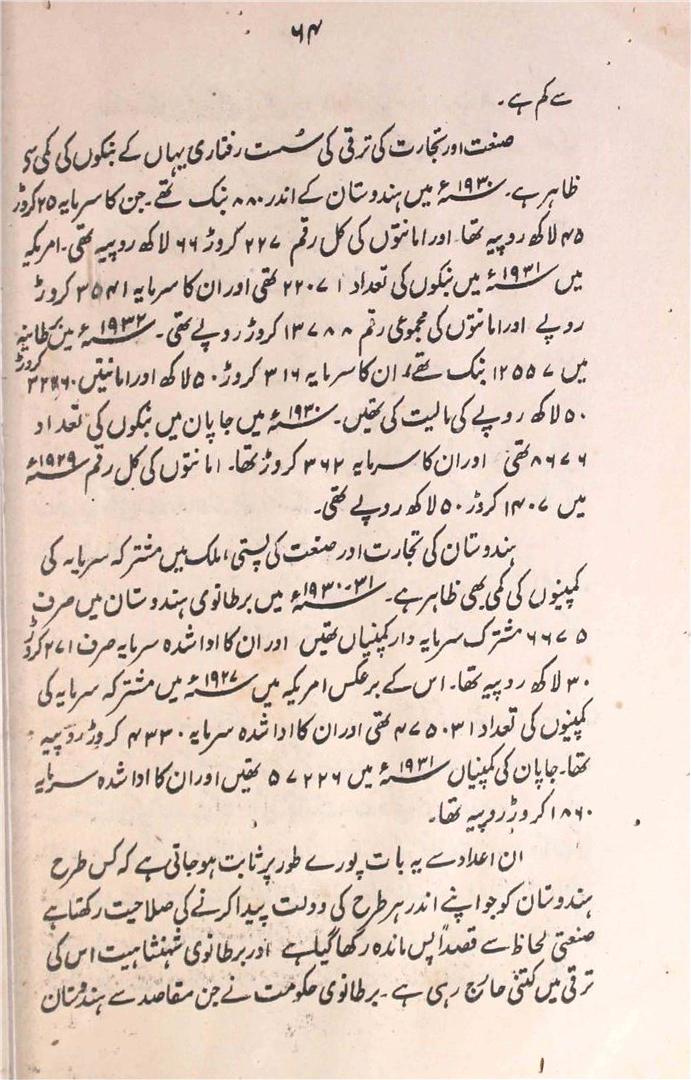 ۶۴
سے کم ہے۔
صنعت اور تجارت کی ترقی کی سُست رفتاری یہاں کے بنکوں کی کمی سے
ظاہر ہے۔ ۱۹۳۰ء میں ہندوستان کے اندر ۸۸۰ بنک تھے۔ جن کا سرمایہ ۲۵ کروڑ
۴۵ لاکھ روپیہ تھا اور امانتوں کی کل رقم ۲۲۷ کروڑ ۶۶ لاکھ روپیہ تھی۔ امریکہ
میں ۱۹۳۱ء میں بنکوں کی تعداد ۲۲۰۷۱ تھی اور ان کا سرمایہ ۳۵۴۱ کروڑ
روپے اور امانتوں کی مجموعی رقم ۱۳۷۸۸ کروڑ روپے تھی۔ ۱۹۳۲ء میں برطانیہ
میں ۱۲۵۵۷ بنک تھے، ان کا سرمایہ ۳۱۶ کروڑ ۵۰ لاکھ اور امانتیں کروڑ
۵۰ لاکھ روپے کی مالیت کی تھیں۔ ۱۹۳۰ء میں جاپان میں بنکوں کی تعداد
۸۶۷۶ تھی اور ان کا سرمایہ ۳۶۲ کروڑ تھا۔ امانتوں کی کل رقم ۱۹۲۹ء
میں ۱۴۰۷ کروڑ ۵۰ لاکھ روپے تھی۔
ہندوستان کی تجارت اور صنعت کی پستی، ملک میں مشترکہ سرمایہ کی
کمپنیوں کی کمی بھی ظاہر ہے۔ ۳۱-۱۹۳۰ء میں برطانوی ہندوستان میں صرف
۶۶۷۵ مشترک سرمایہ دار کمپنیاں تھیں اور ان کا ادا شدہ سرمایہ صرف ۲۷۱ کروڑ
۳۰ لاکھ روپیہ تھا۔ اس کے برعکس امریکہ میں ۱۹۲۷ء میں مشترکہ سرمایہ کی
کمپنیوں کی تعداد ۴۷۵۰۳۱ تھی اور ان کا ادا شدہ سرمایہ ۴۳۳۰ کروڑ روپیہ
تھا۔ جاپان کی کمپنیاں ۱۹۳۱ء میں ۵۷۲۲۶ تھیں اور ان کا ادا شدہ سرمایہ
۱۸۶۰ کروڑ روپیہ تھا۔
ان اعداد سے یہ بات پورے طور پر ثابت ہو جاتی ہے کہ کس طرح
ہندوستان کو جو اپنے اندر ہر طرح کی دولت پیدا کرنے کی صلاحیت رکھتا ہے
صنعتی لحاظ سے قصداً پس ماندہ رکھا گیا ہے اور برطانوی شہنشاہیت اس کی
ترقی میں کتنی حارج رہی ہے۔ برطانوی حکومت نے جن مقاصد سے ہندوستان